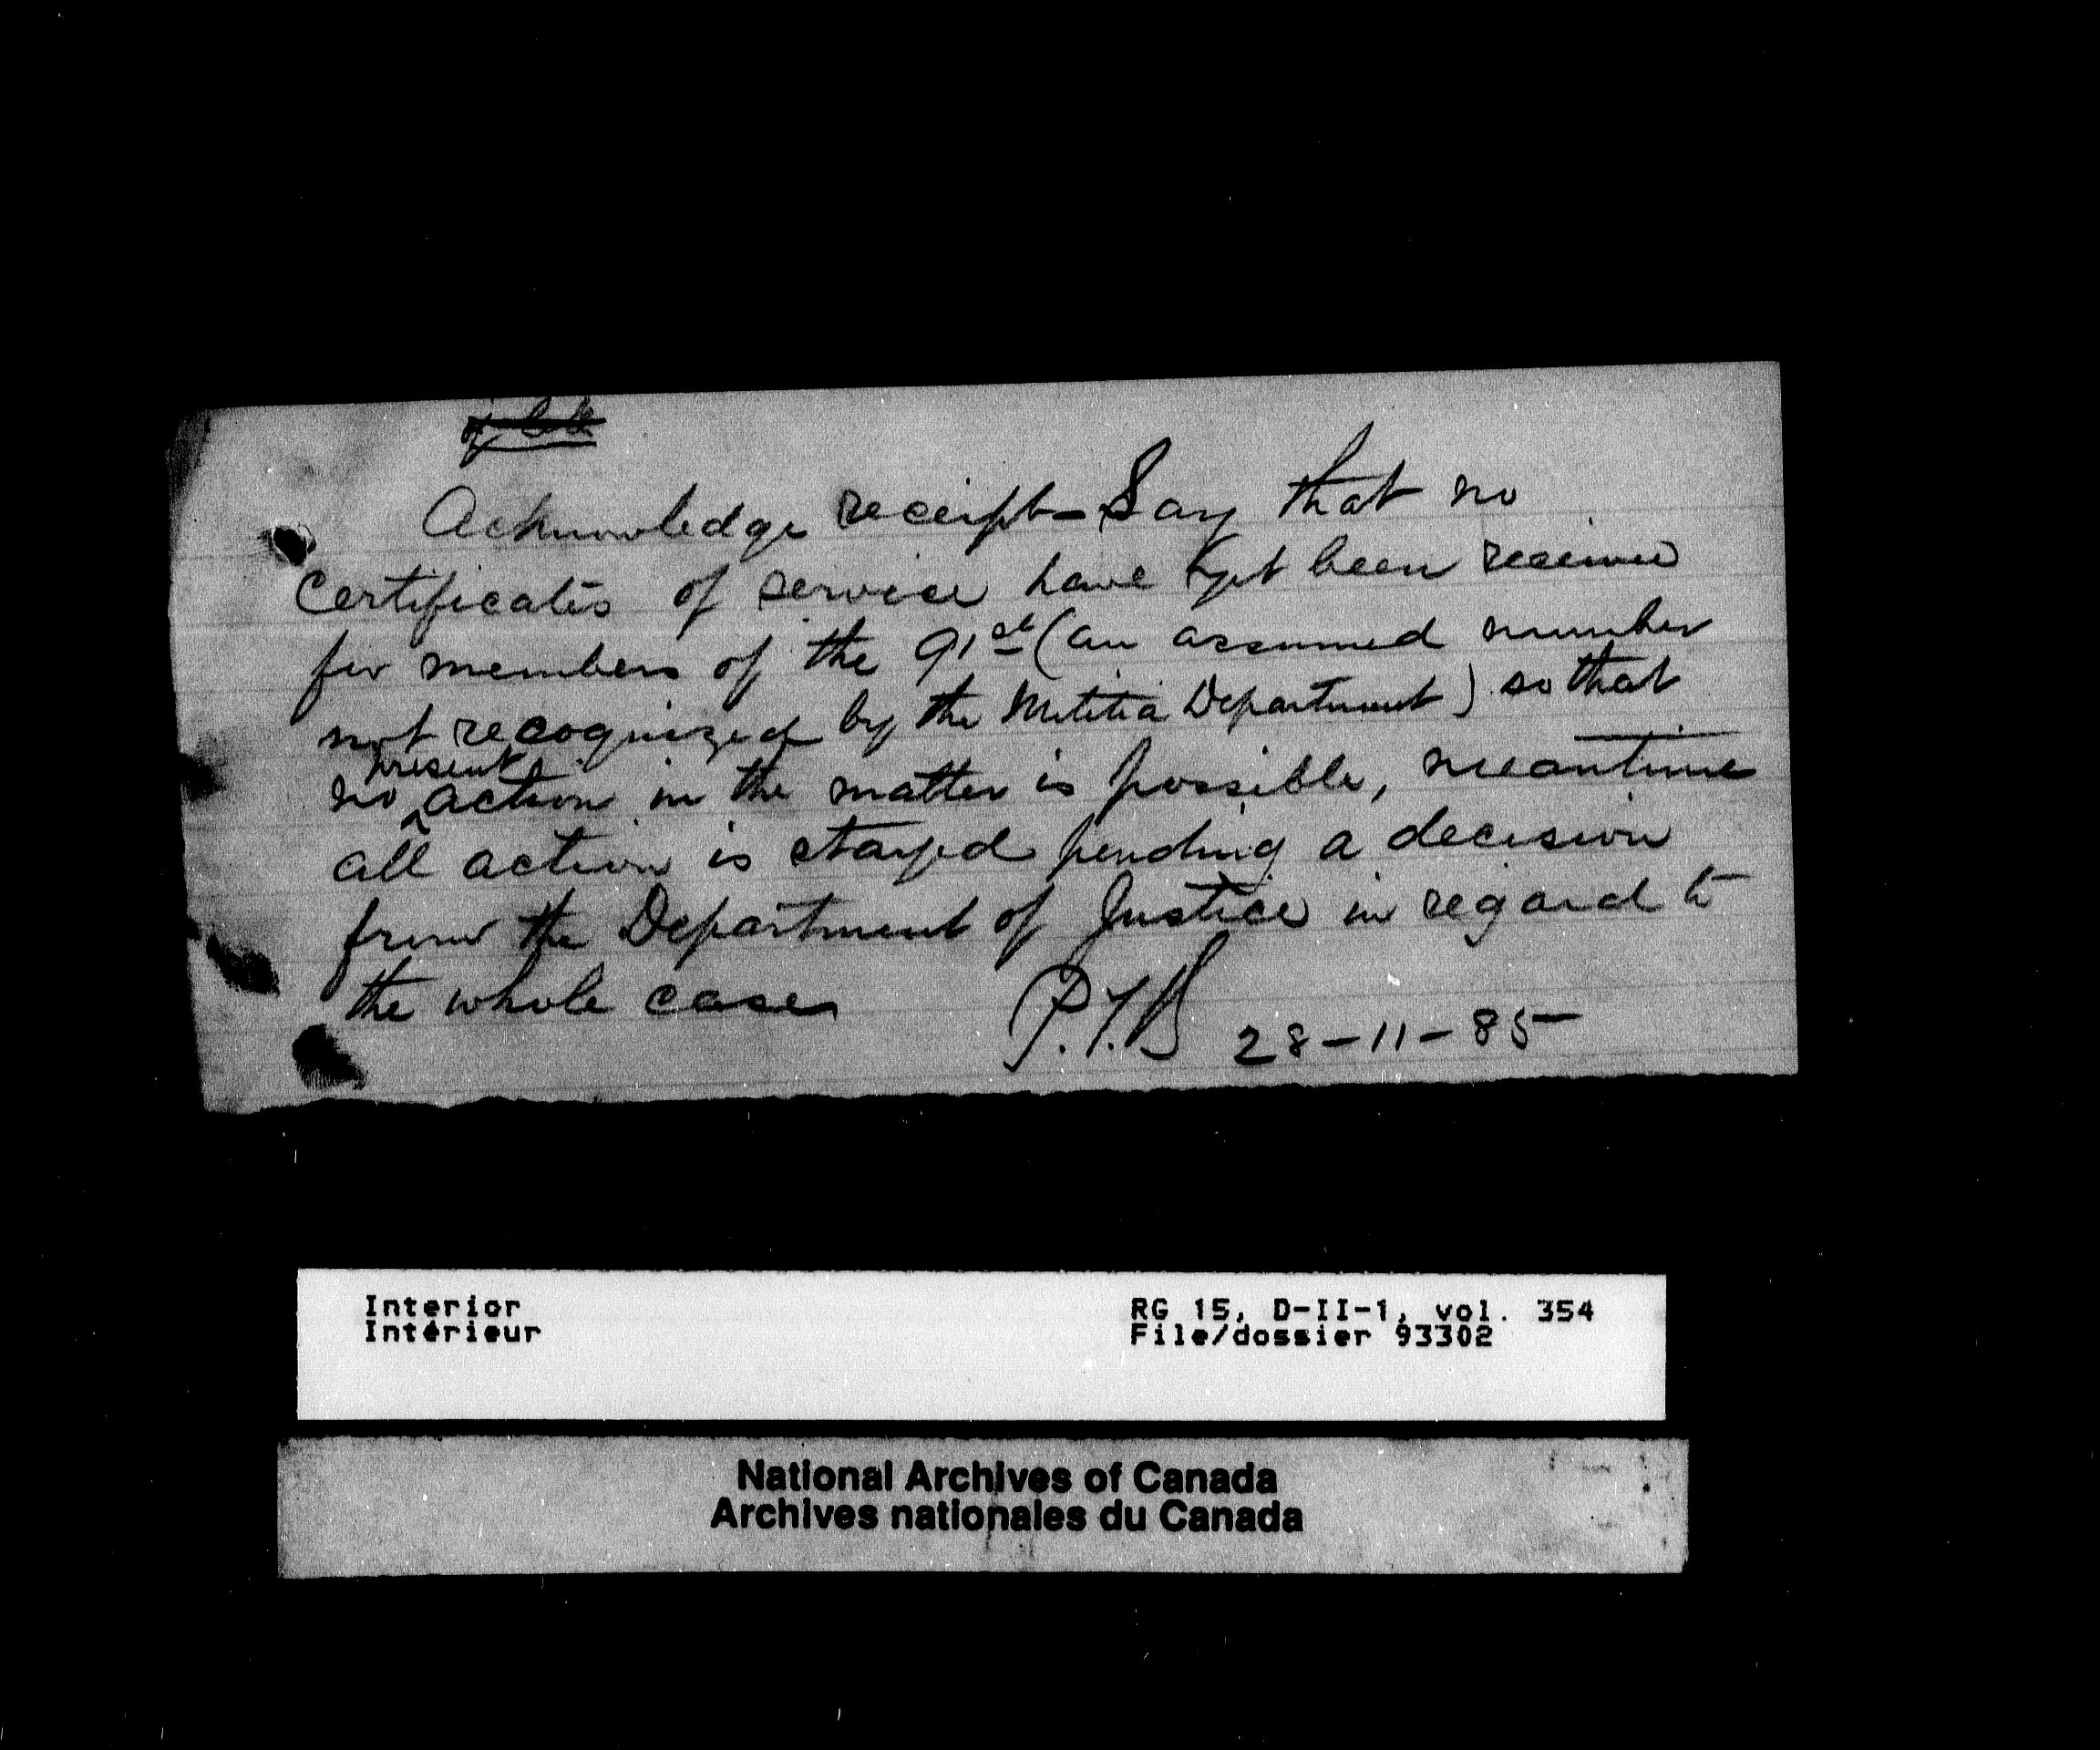 Acknowledge receipt - Say that no
Certificates of service have yet been received
for members of the 91st (an assumed number
not recognized by the Militia Department) so that
present
no action in the matter is possible, meantime
all action is stayed pending a decision
from the Department of Justice in regard to
the whole case
28-11-85
Interior
Intérieur
RG 15, D-II-1, vol. 354
File/dossier 93302
National Archives of Canada
Archives nationales du Canada